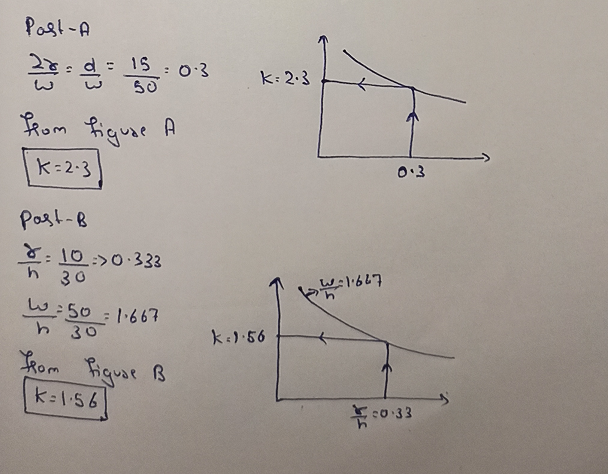 Part-A
2r/w = d/w = 15/50 = 0.3
from figure A
K=2.3
K=2.3
0.3
Part-B
r/h = 10/30 => 0.333
w/h = 50/30 = 1.667
from figure B
K=1.56
w/h=1.667
K=1.56
r/h=0.33